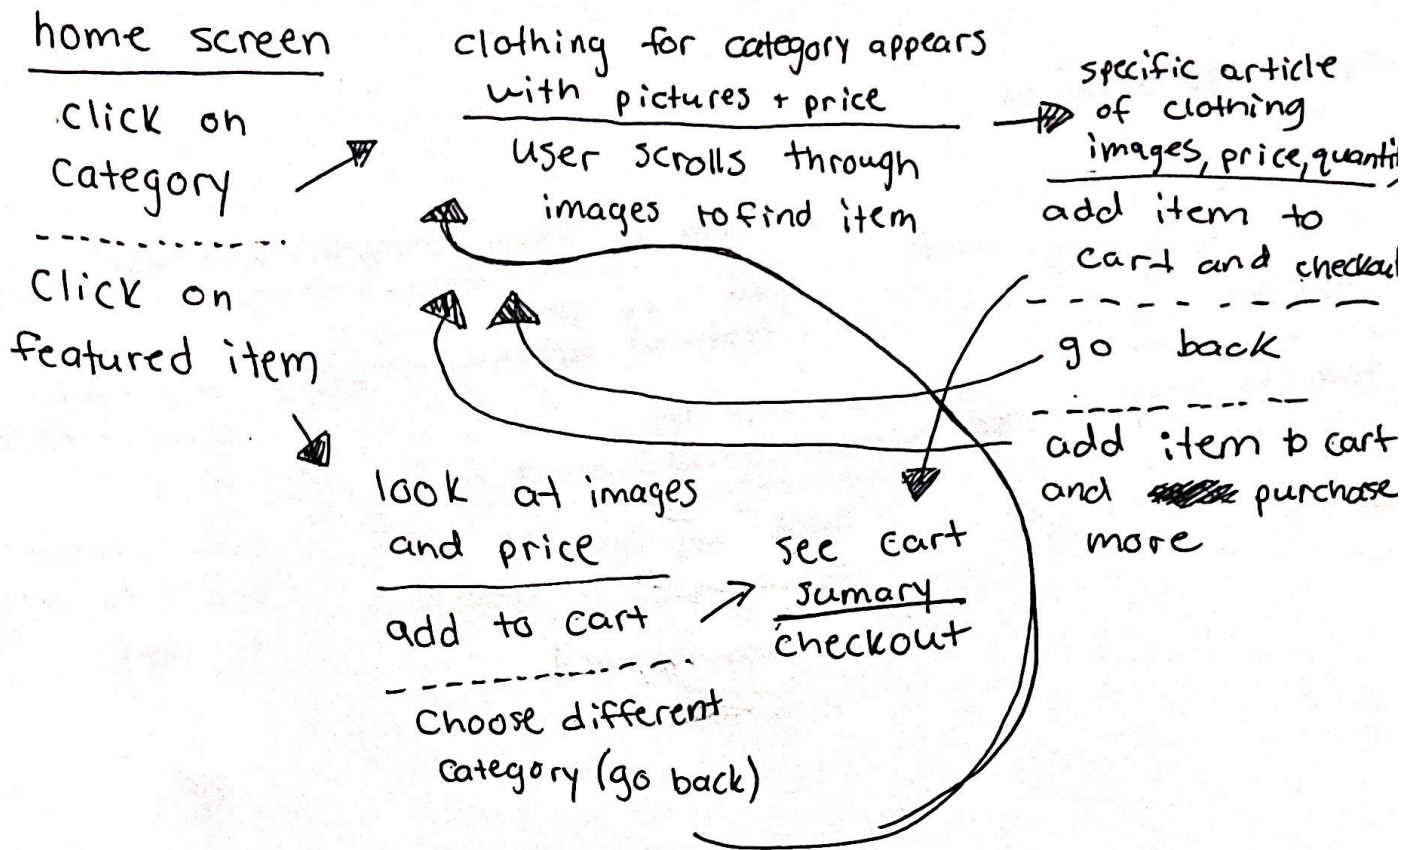 home screen
click on
category
Click on
featured item
clothing for category appears
with pictures + price
user scrolls through
images to find item
specific article
of clothing
images, price, quanti
add item to
cart and checkou
go back
add item to cart
and purchase
more
look at images
and price
add to cart
Choose different
category (go back)
see cart
sumary
checkout